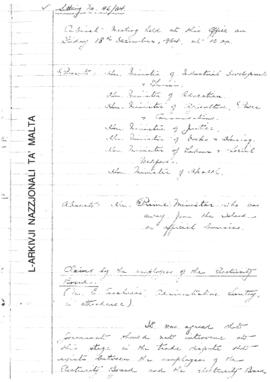 Sitting No. 46/64.
Cabinet Meeting held at this Office on
Friday 18th December, 1964, at
Present: Hon. Minister of Industrial Development
& Tourism.
Hon. Minister of Education.
Hon. Minister of Agriculture, Power
& Communications.
Hon. Minister of Justice.
Hon. Minister of Works & Housing.
Hon. Minister of Labour & Social
Welfare.
Hon. Minister of Health.
L-ARKIVJI NAZZJONALI TA' MALTA
Absent: Hon. Prime Minister who was
away from the Island
on official business.
Claims by the employees of the Electricity
Board.
(Mr. Administrative Secretary,
in attendance).
It was agreed that
Government should not intervene at
this stage in the trade dispute that
exists between the employees of the
Electricity Board and the Electricity Board